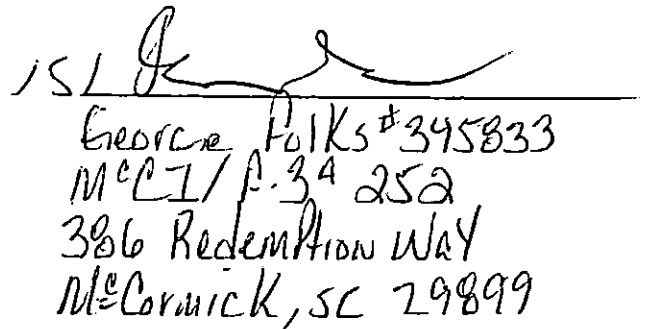 /S/
George Folks #345833
McCI/ F.3A 252
386 Redemption Way
McCormick, SC 29899